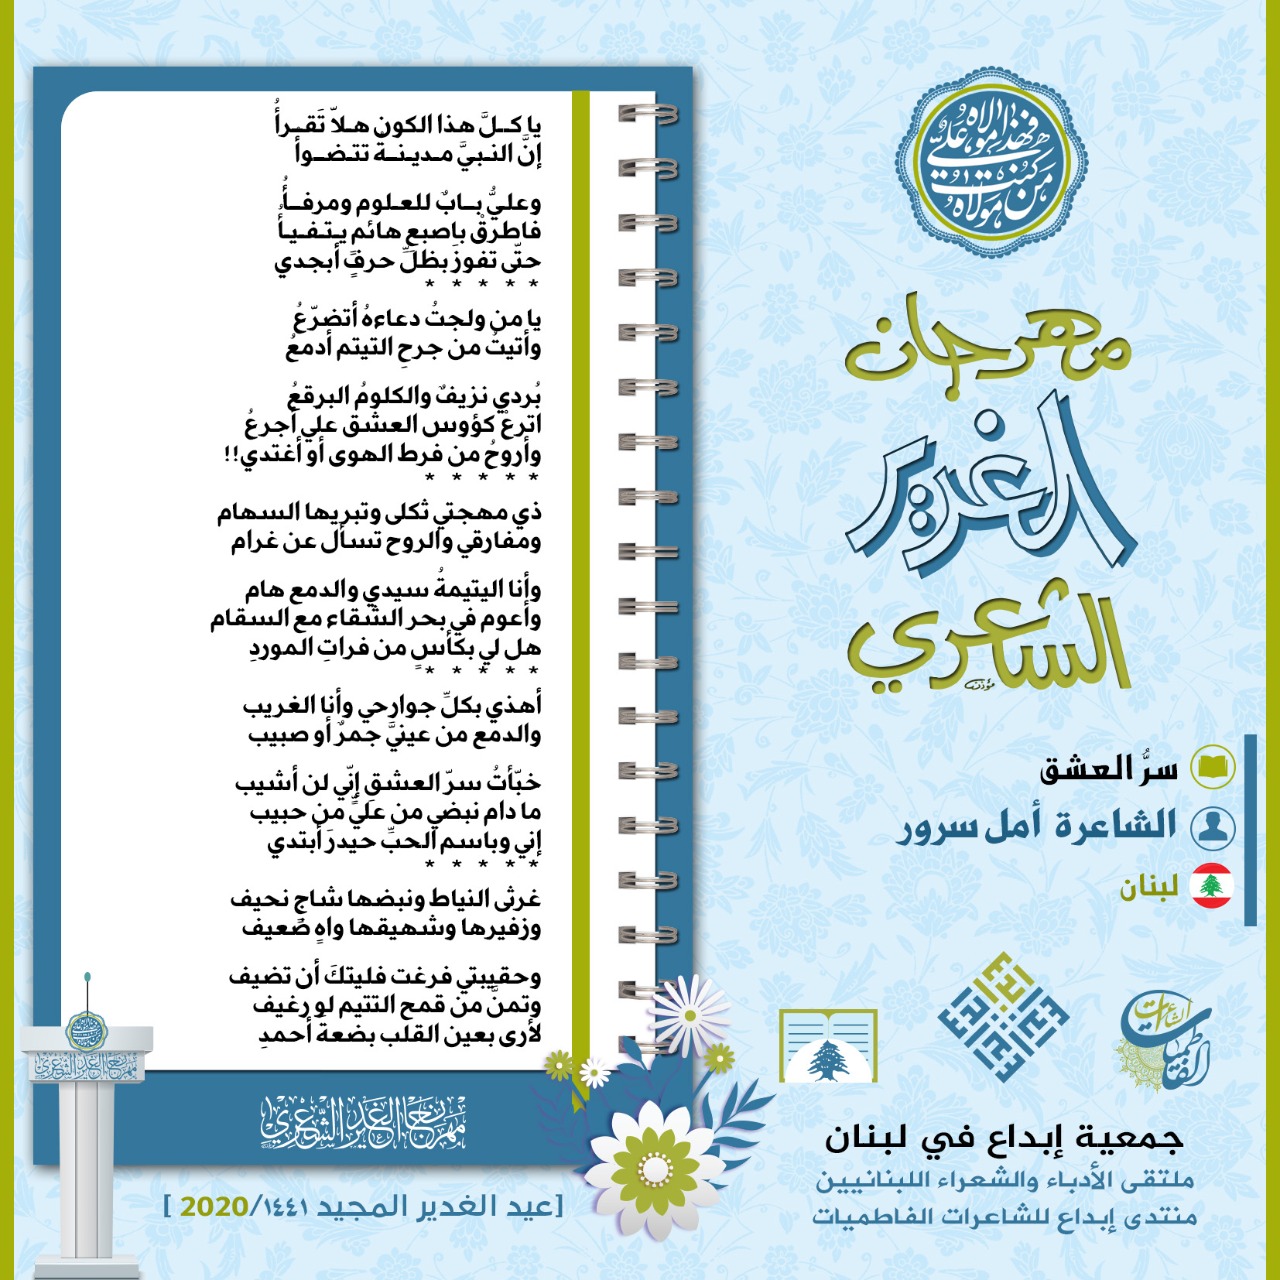 من كنت مولاه
فهذا علي مولاه
مهرجان
الغدير
الشعري
سرُّ العشق
الشاعرة أمل سرور
لبنان
يا كــلَّ هذا الكون هـلاّ تَقــرأُ
إنَّ النـبيَّ مـديـنــةٌ تتـضــوأ
وعليُّ بــابٌ للعـلوم ومرفــأُ
فاطرقْ بإصبعِ هائمٍ يـتـفـيـأُ
حتّى تفوزَ بظلِّ حرفٍ أبجدي
* * * * *
يا من ولجتُ دعاءهُ أتضرّعُ
وأتيتُ من جرحِ التيتم أدمعُ
بُردي نزيفٌ والكلومُ البرقعُ
اترعْ كؤوس العشق علي أجرعُ
وأروحُ من فرط الهوى أو أغتدي!!
* * * * *
ذي مهجتي ثكلى وتبريها السهام
ومفارقي والروح تسأل عن غرام
وأنا اليتيمةُ سيدي والدمع هام
وأعوم في بحر الشقاء مع السقام
هل لي بكأسٍ من فراتِ الموردِ
* * * * *
أهذي بكلِّ جوارحي وأنا الغريب
والدمع من عينيَّ جمرٌ أو صبيب
خبّأتُ سرّ العشقِ إنّي لن أشيب
ما دام نبضي من عليٍّ من حبيب
إني وباسم الحبِّ حيدرَ أبتدي
* * * * *
غرثى النياط ونبضها شاجٍ نحيف
وزفيرها وشهيقها واهٍ ضعيف
وحقيبتي فرغت فليتكَ أن تضيف
وتمنَّ من قمح التتيم لو رغيف
لأرى بعين القلب بضعةَ أحمدِ
مهرجان الغدير الشعري
[عيد الغدير المجيد ١٤٤١/2020 ]
إبداع
الشاعرات
الفاطميات
جمعية إبداع في لبنان
ملتقى الأدباء والشعراء اللبنانيين
منتدى إبداع للشاعرات الفاطميات